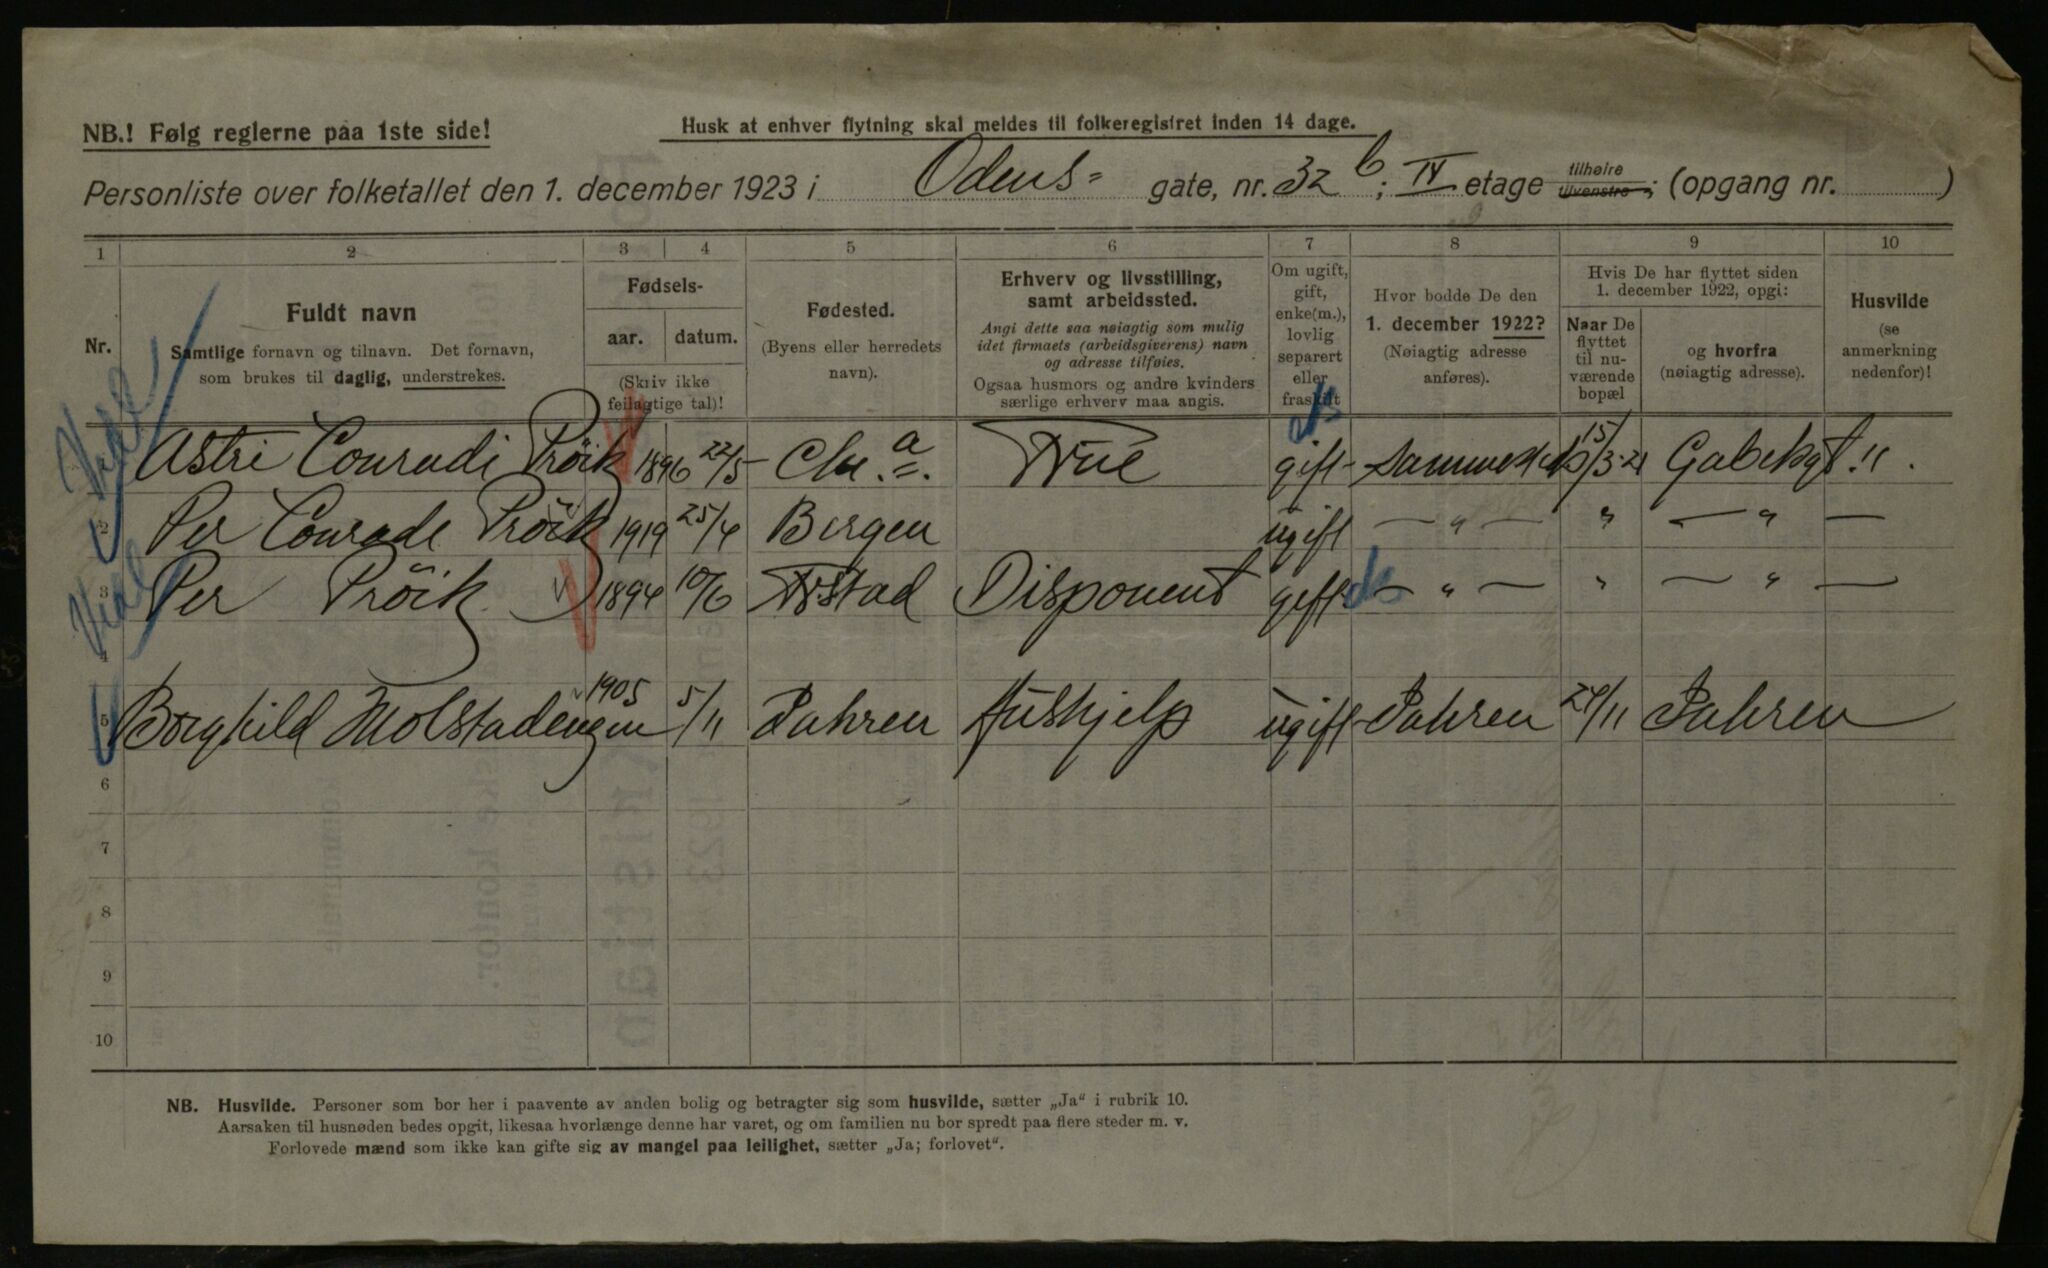 NB.! Følg reglerne paa 1ste side!
Husk at enhver flytning skal meldes til folkeregistret inden 14 dage.
Personliste over folketallet den 1. december 1923 i Odens= gate, nr. 32 b; IV etage tilhøire tilvenstre; (opgang nr. )
1 2 3 4 5 6 7 8 9 10
Nr.
Fuldt navn
Samtlige fornavn og tilnavn. Det fornavn,
som brukes til daglig, understrekes.
Fødsels-
aar. datum.
(Skriv ikke
feilagtige tal)!
Fødested.
(Byens eller herredets
navn).
Erhverv og livsstilling,
samt arbeidssted.
Angi dette saa nøiagtig som mulig
idet firmaets (arbeidsgiverens) navn
og adresse tilføies.
Ogsaa husmors og andre kvinders
særlige erhverv maa angis.
Om ugift,
gift,
enke(m.),
lovlig
separert
eller
fraskilt
Hvor bodde De den
1. december 1922?
(Nøiagtig adresse
anføres).
Hvis De har flyttet siden
1. december 1922, opgi:
Naar De
flyttet
til nu-
værende
bopæl
og hvorfra
(nøiagtig adresse).
Husvilde
(se
anmerkning
nedenfor)!
Astri Conradi Pröik 1896 22/5 Chr.a. Frue gift Samme sted 15/3-21 Gabelsgt. 11.
2 Per Conrade Pröik 1919 25/4 Bergen ugift — " — " — " —
3 Per Pröik 1894 10/6 Årstad Disponent gift — " — " — " —
4
5 Borghild Molstadengen 1905 5/11 Jahren Hushjelp ugift Jahren 24/11 Jahren
6
7
8
9
10
NB. Husvilde. Personer som bor her i paavente av anden bolig og betragter sig som husvilde, sætter „Ja" i rubrik 10.
Aarsaken til husnøden bedes opgit, likesaa hvorlænge denne har varet, og om familien nu bor spredt paa flere steder m. v.
Forlovede mænd som ikke kan gifte sig av mangel paa leilighet, sætter „Ja; forlovet".